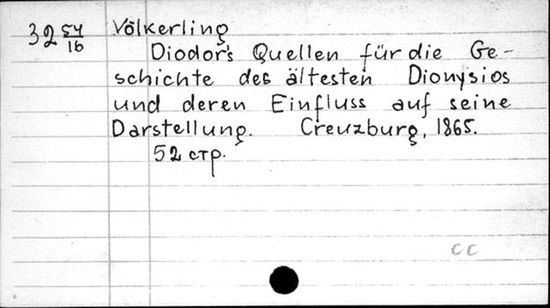 32 54/16 Völkerling
Diodor's Quellen für die Ge-
schichte des ältesten Dionysios
und deren Einfluss auf seine
Darstellung. Creuzburg, 1865.
52 стр.
CC